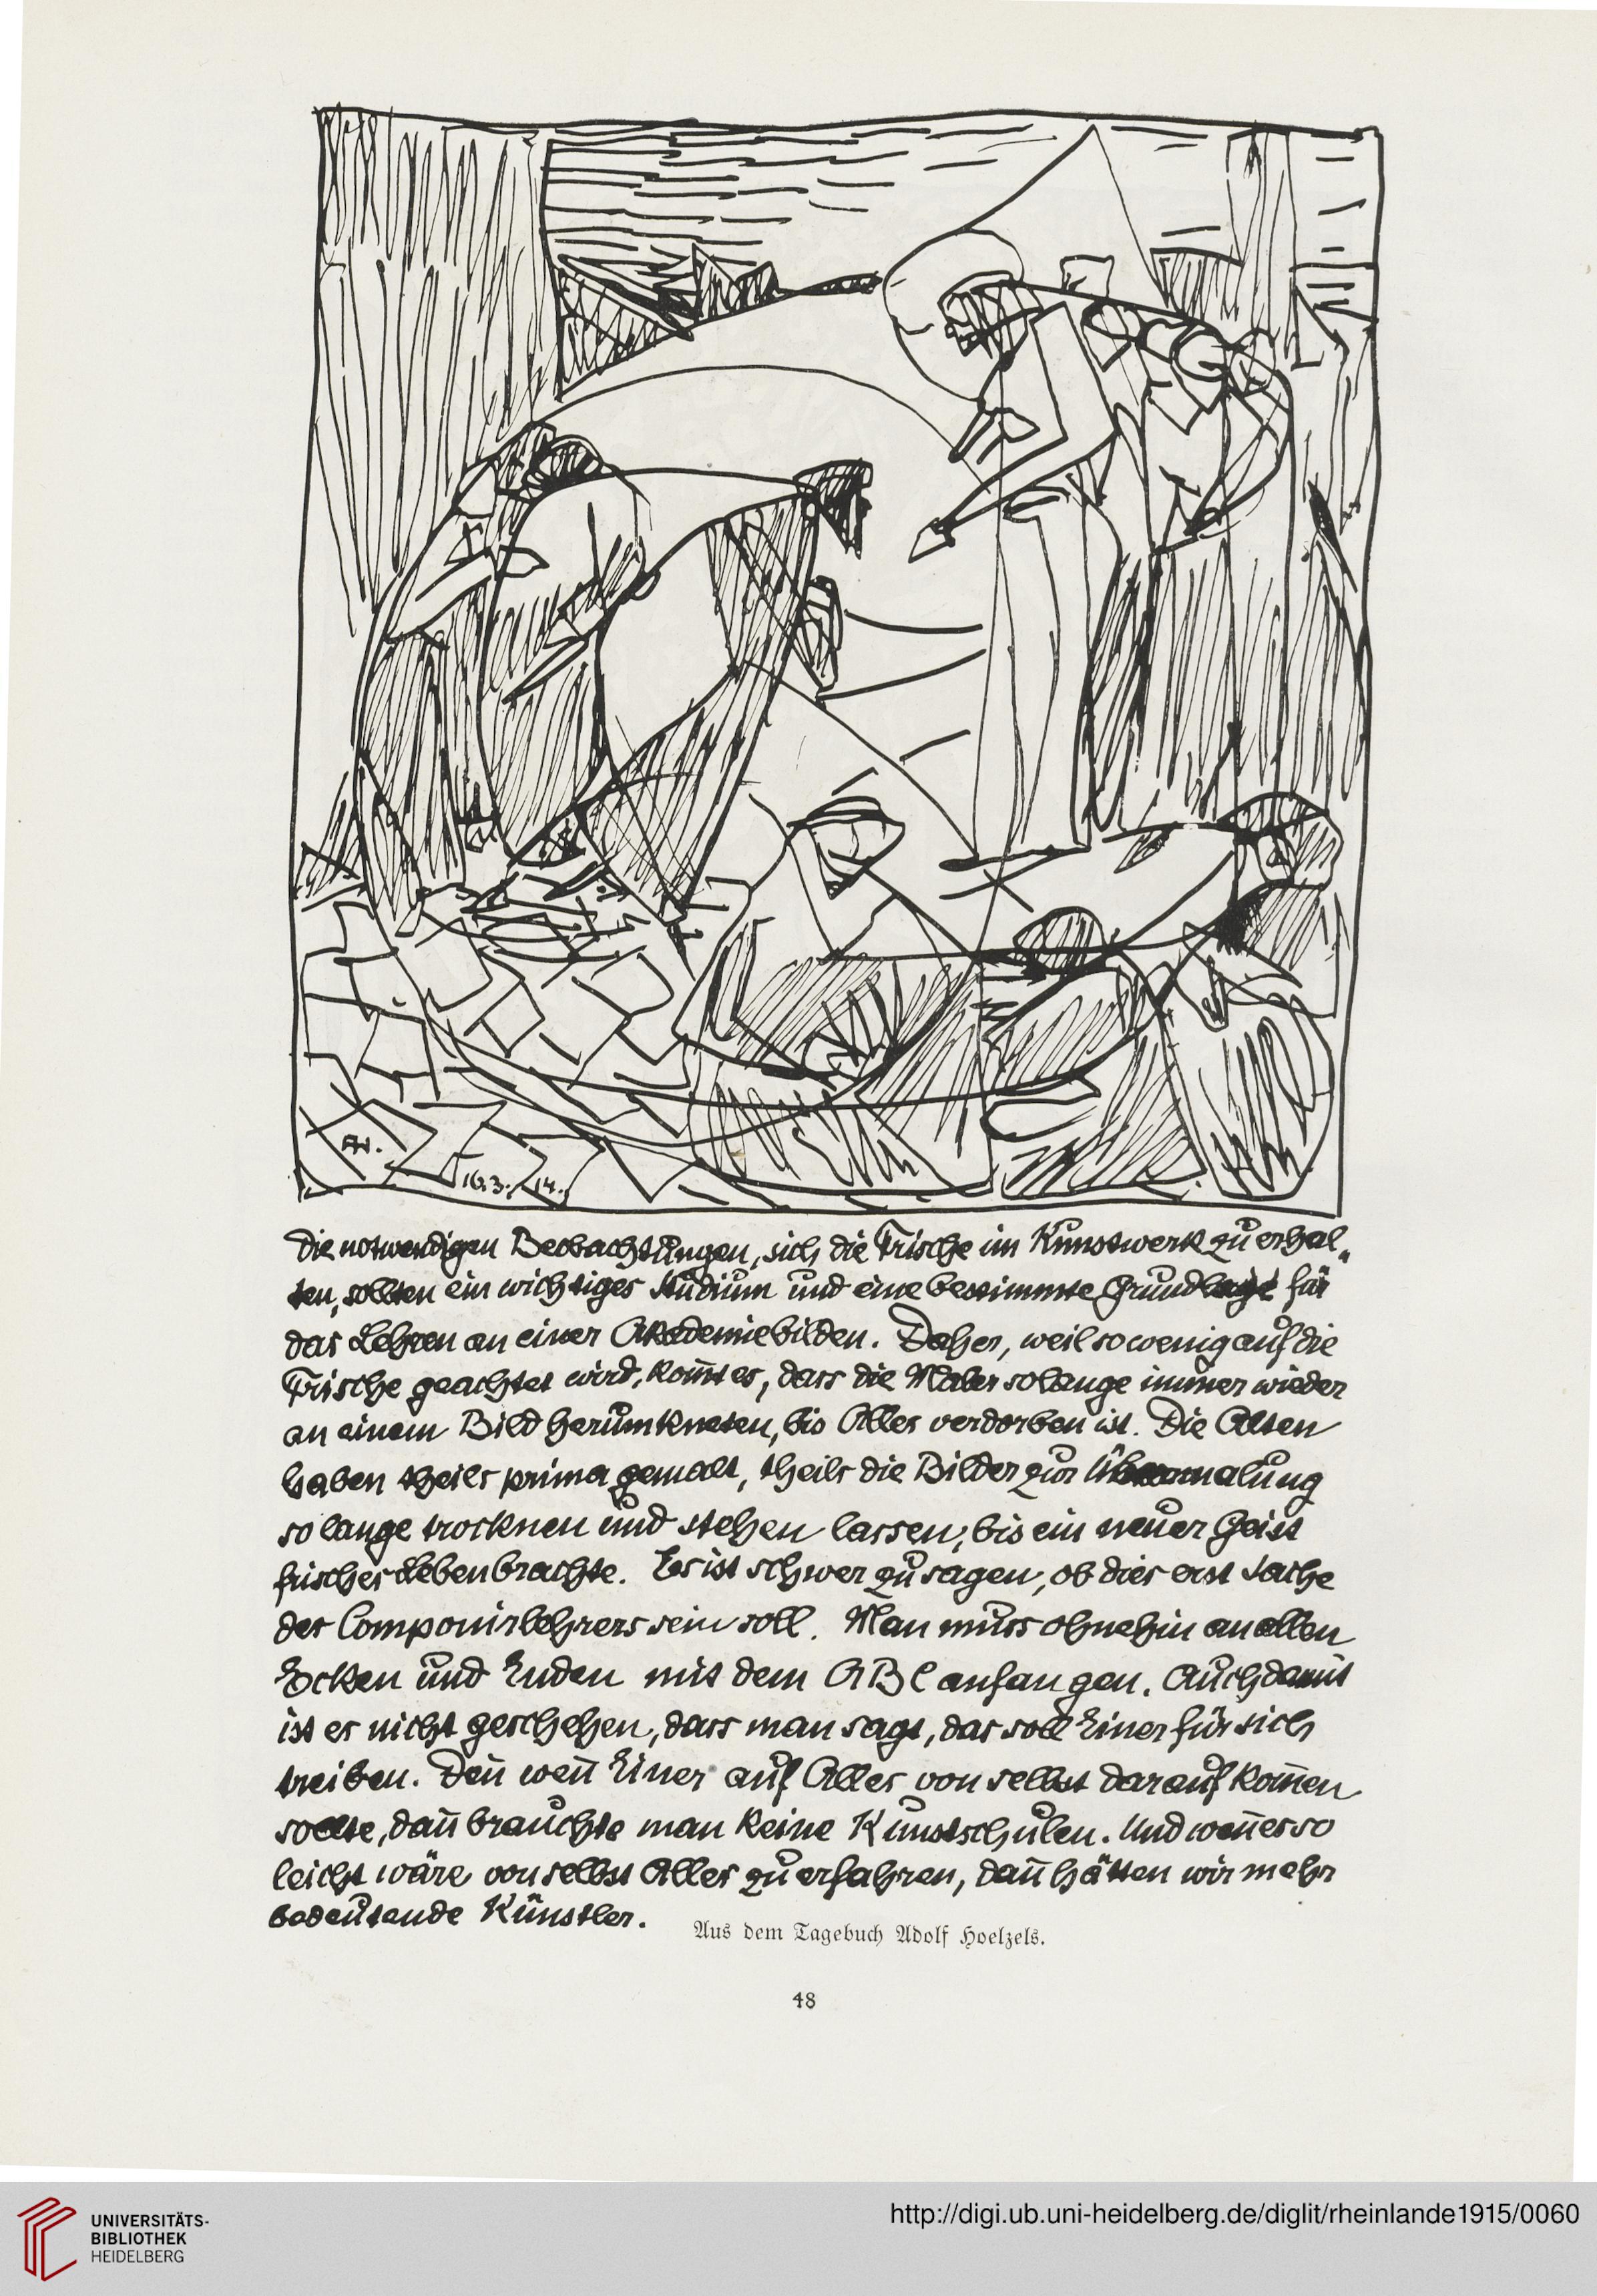 AH.
16.3.14.
Die notwendigen Beobachtungen, sich die Frische im Kunstwerk zu erhal-
ten, sollten ein wichtiges Studium und eine bestimmte Grundlage für
das Lehren an einer Akademie bilden. Daher, weil so wenig auf die
Frische geachtet wird, kom̅t es, dass die Maler solange immer wieder
an einem Bild herumkneten, bis Alles verdorben ist. Die Alten
haben theils prima gemalt, theils die Bilder zur Übermalung
so lange trocknen und stehen lassen, bis ein neuer Geist
frisches Leben brachte. Es ist schwer zu sagen, ob dies erst Sache
des Componirlehrers sein soll. Man muss ohnehin an allen
Ecken und Enden mit dem ABC anfangen. Auch damit
ist es nicht geschehen, dass man sagt, das soll Einer für sich
treiben. Den̅ wen̅ Einer auf Alles von selbst darauf kom̅en
sollte, dan̅ brauchte man keine Kunstschulen. Und wen̅ es so
leicht wäre von selbst Alles zu erfahren, dan̅ hätten wir mehr
bedeutende Künstler.
Aus dem Tagebuch Adolf Hoelzels.
48
UNIVERSITÄTS-
BIBLIOTHEK
HEIDELBERG
http://digi.ub.uni-heidelberg.de/diglit/rheinlande1915/0060